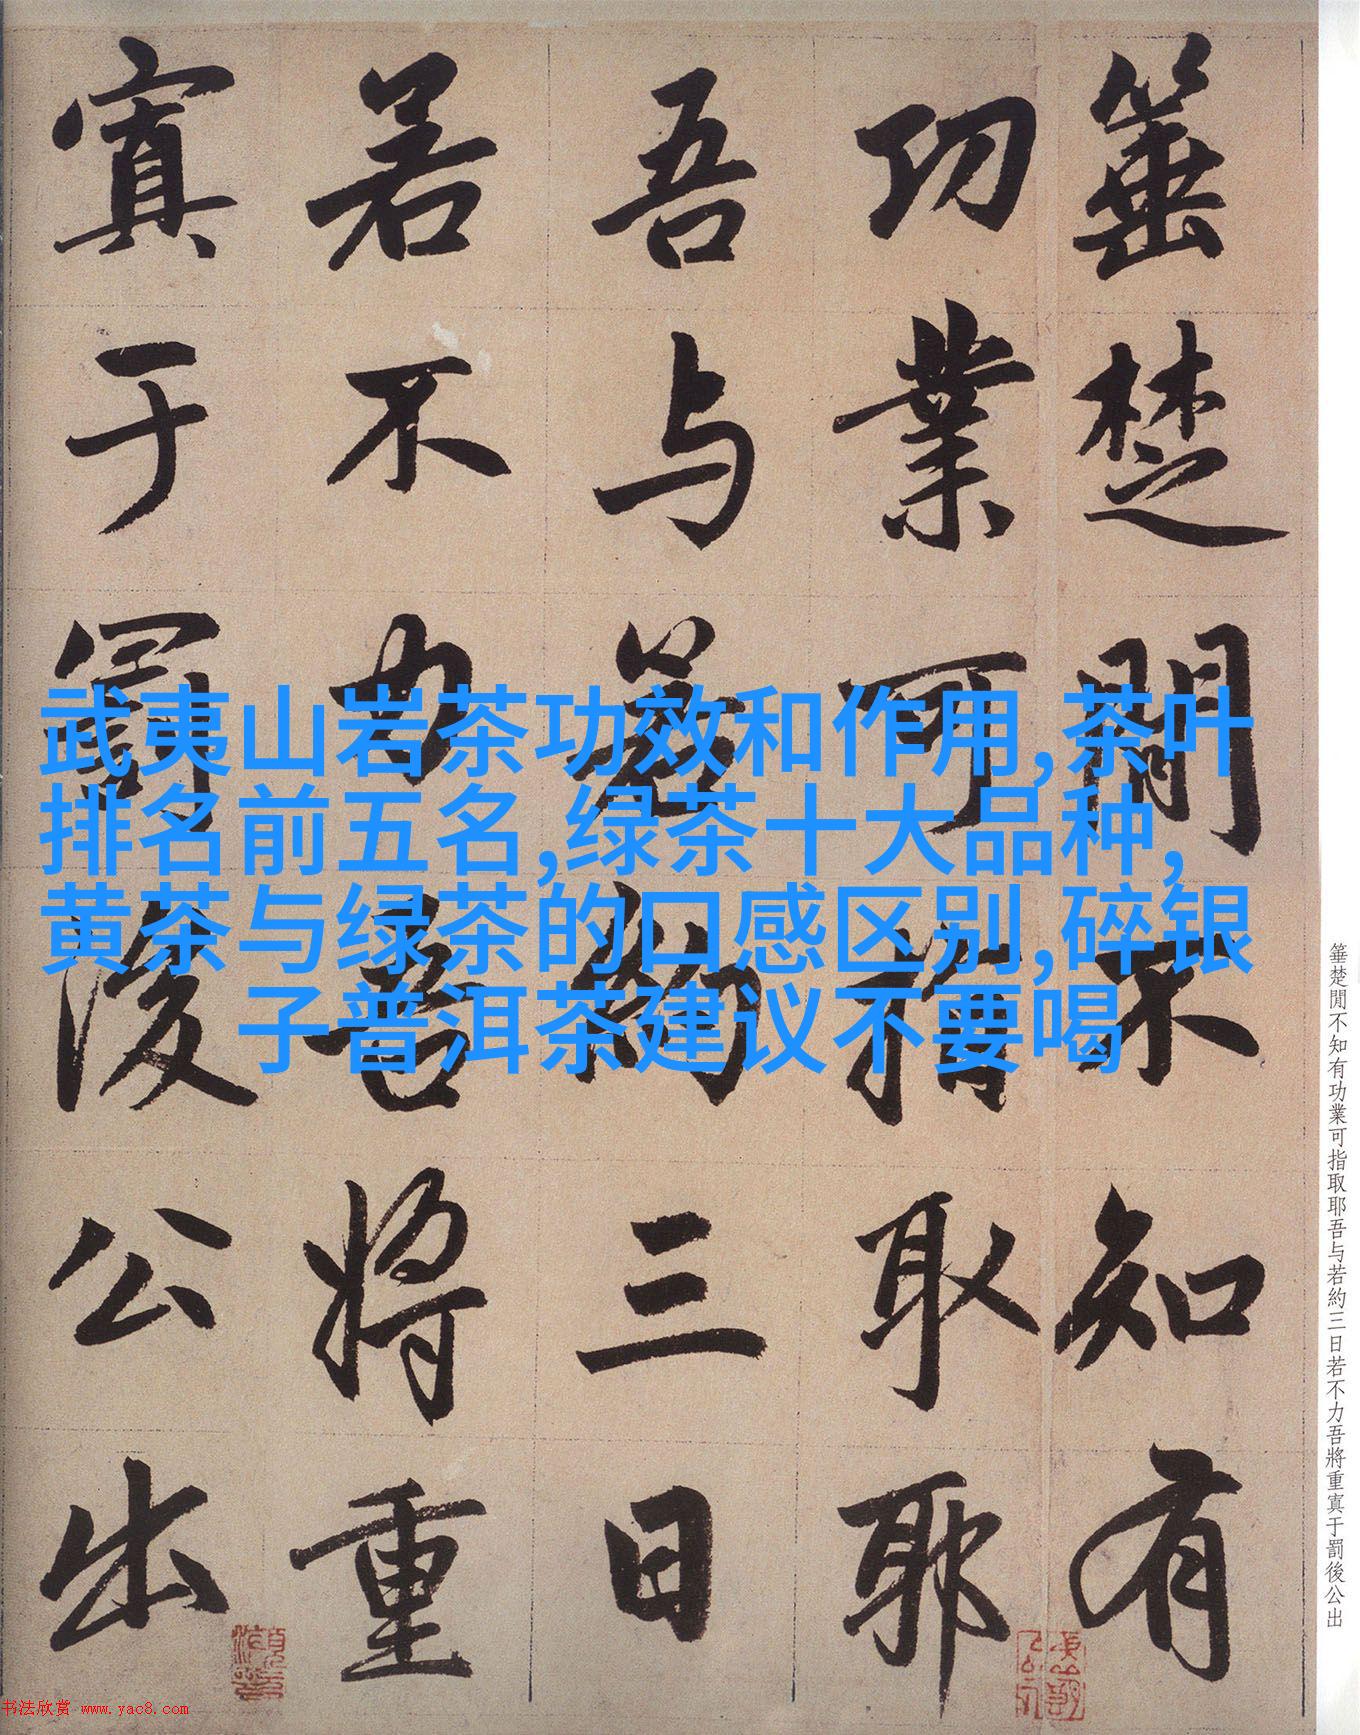 箠楚閒不知有
功業可指取耶
吾与若約三日
若不力吾將重
寘于罰後公出
武夷山岩茶功效和作用,茶叶
排名前五名,绿茶十大品种,
黄茶与绿茶的口感区别,碎银
子普洱茶建议不要喝
箠楚閒不知有功業可指取耶吾与若約三日若不力吾將重寘于罰後公出
书法欣赏 www.yac8.com